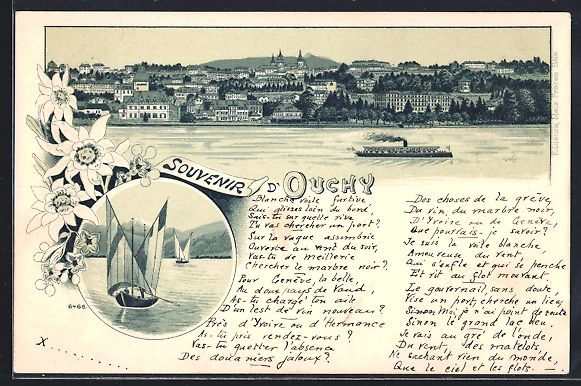 SOUVENIR D'OUCHY
Blanche voile furtive,
Qui glisses loin du bord,
Sais-tu sur quelle rive
Tu vas chercher un port?
Sur la vague assombrie
Ouverte au vent du soir,
Vas-tu de Meillerie
Chercher le marbre noir?
Pour Genève, la belle,
Au doux pays de Vaud,
As-tu chargé ton aile
D'un lest de vin nouveau?
Près d'Yvoire ou d'Hermance
As-tu pris rendez-vous?
Vas-tu guetter l'absence
Des douaniers jaloux?
Des choses de la grève,
Du vin, du marbre noir,
D'Yvoire ou de Genève,
Que pourrais-je savoir?
Je suis la voile blanche
Amoureuse du vent,
Qui s'enfle et qui se penche
Et rit au flot mouvant
Le gouvernail, sans doute,
Vise un port, cherche un lieu;
Sinon Moi, je n'ai point de route
Sinon le grand lac bleu.
Je vais au gré de l'onde,
Du vent, des matelots,
Ne sachant rien du monde,
Que le ciel et les flots. —
6466
X